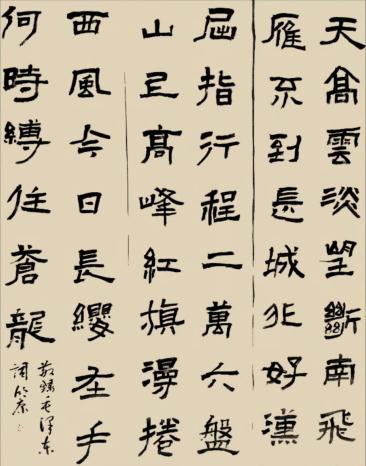 天高雲淡望斷南飛
雁不到長城非好漢
屈指行程二萬六盤
山上高峰紅旗漫捲
西風今日長纓在手
何時縛住蒼龍
敬錄毛澤東
詞於京